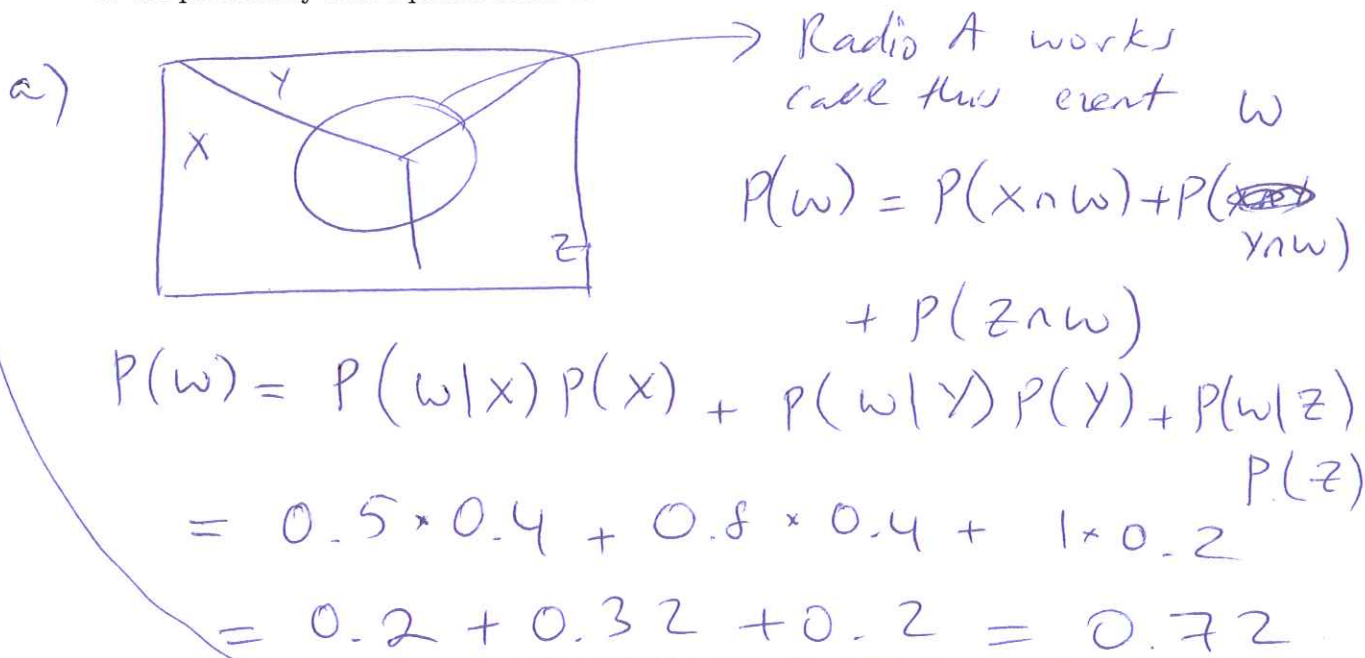 a)
Y
X
Z
→ Radio A works
call this event W
P(W) = P(X∩W) + P(
Y∩W)
+ P(Z∩W)
P(W) = P(W|X) P(X) + P(W|Y) P(Y) + P(W|Z)
P(Z)
= 0.5 × 0.4 + 0.8 × 0.4 + 1 × 0.2
= 0.2 + 0.32 + 0.2 = 0.72